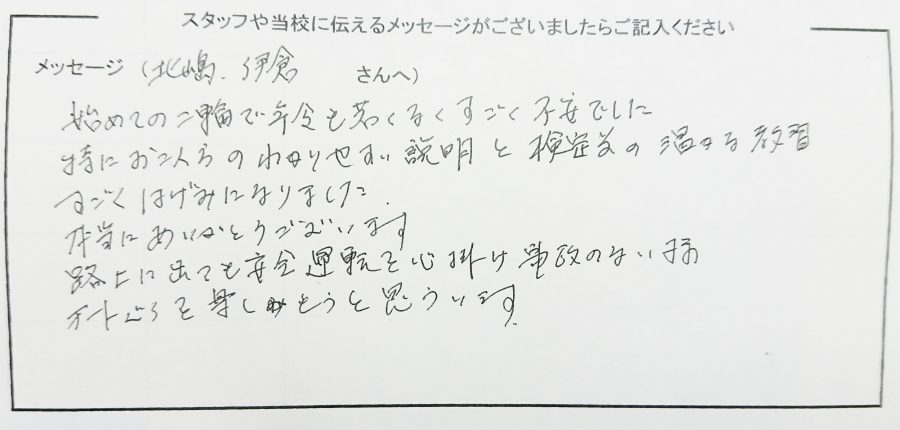 スタッフや当校に伝えるメッセージがございましたらご記入ください
メッセージ (北嶋、伊倉 さんへ)
始めての二輪で年令も若くなくすごく不安でした
特にお二人のわかりやすい説明と検定前の温かる教習
すごくはげみになりました
本当にありがとうございます
路上に出ても安全運転を心掛け事故のない様
オートバイを楽しもうと思ういます